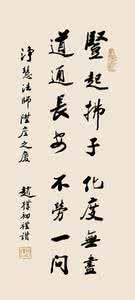 豎起拂子 化度無盡
道通長安 不勞一問
淨慧法師漢座之慶
趙樸初禮讚